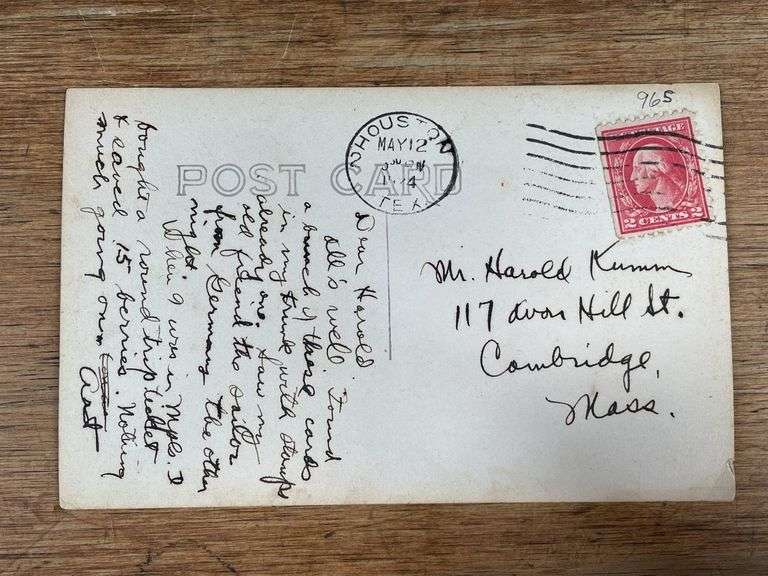 965
POST CARD
HOUSTON
MAY 12
TEX
POSTAGE
2 CENTS 2
Dear Harold
all's well. Found
a bunch of these cards
in my trunk with stamps
already on. Saw my
old friend the sailor
from Germany the other
night.
When I was in Mpls. I
bought a round trip ticket
& saved 15 berries. Nothing
much going on
Mr. Harold Kumm
117 Avon Hill St.
Cambridge,
Mass.